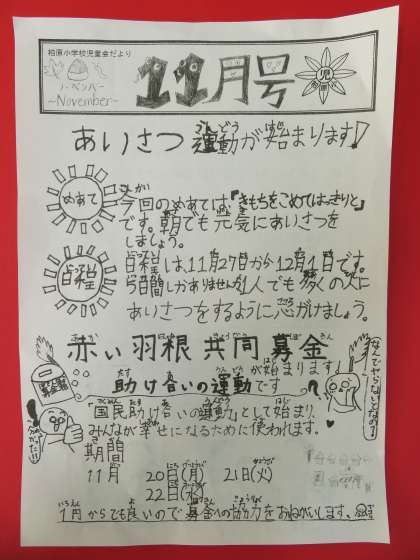 柏原小学校児童会だより
ノーベンバー
~November~
11月号
児
あいさつ運動が始まります!
めあて
今回のめあては、『きもちをこめてはっきりと』
です。朝でも元気にあいさつを
しましょう。
日程
日程は、11月27日から12月1日です。
5日間しかありませんが1人でも多くの人に
あいさつをするように心がけましょう。
赤い羽根共同募金
が始まります!
助け合いの運動です
"国民助け合いの運動"として始まり、
みんなが幸せになるために使われます。
期間
11月 20日(月) 21日(火)
22日(水)
1円からでも良いので募金への協力をおねがいします。
なんでやらないとなの?